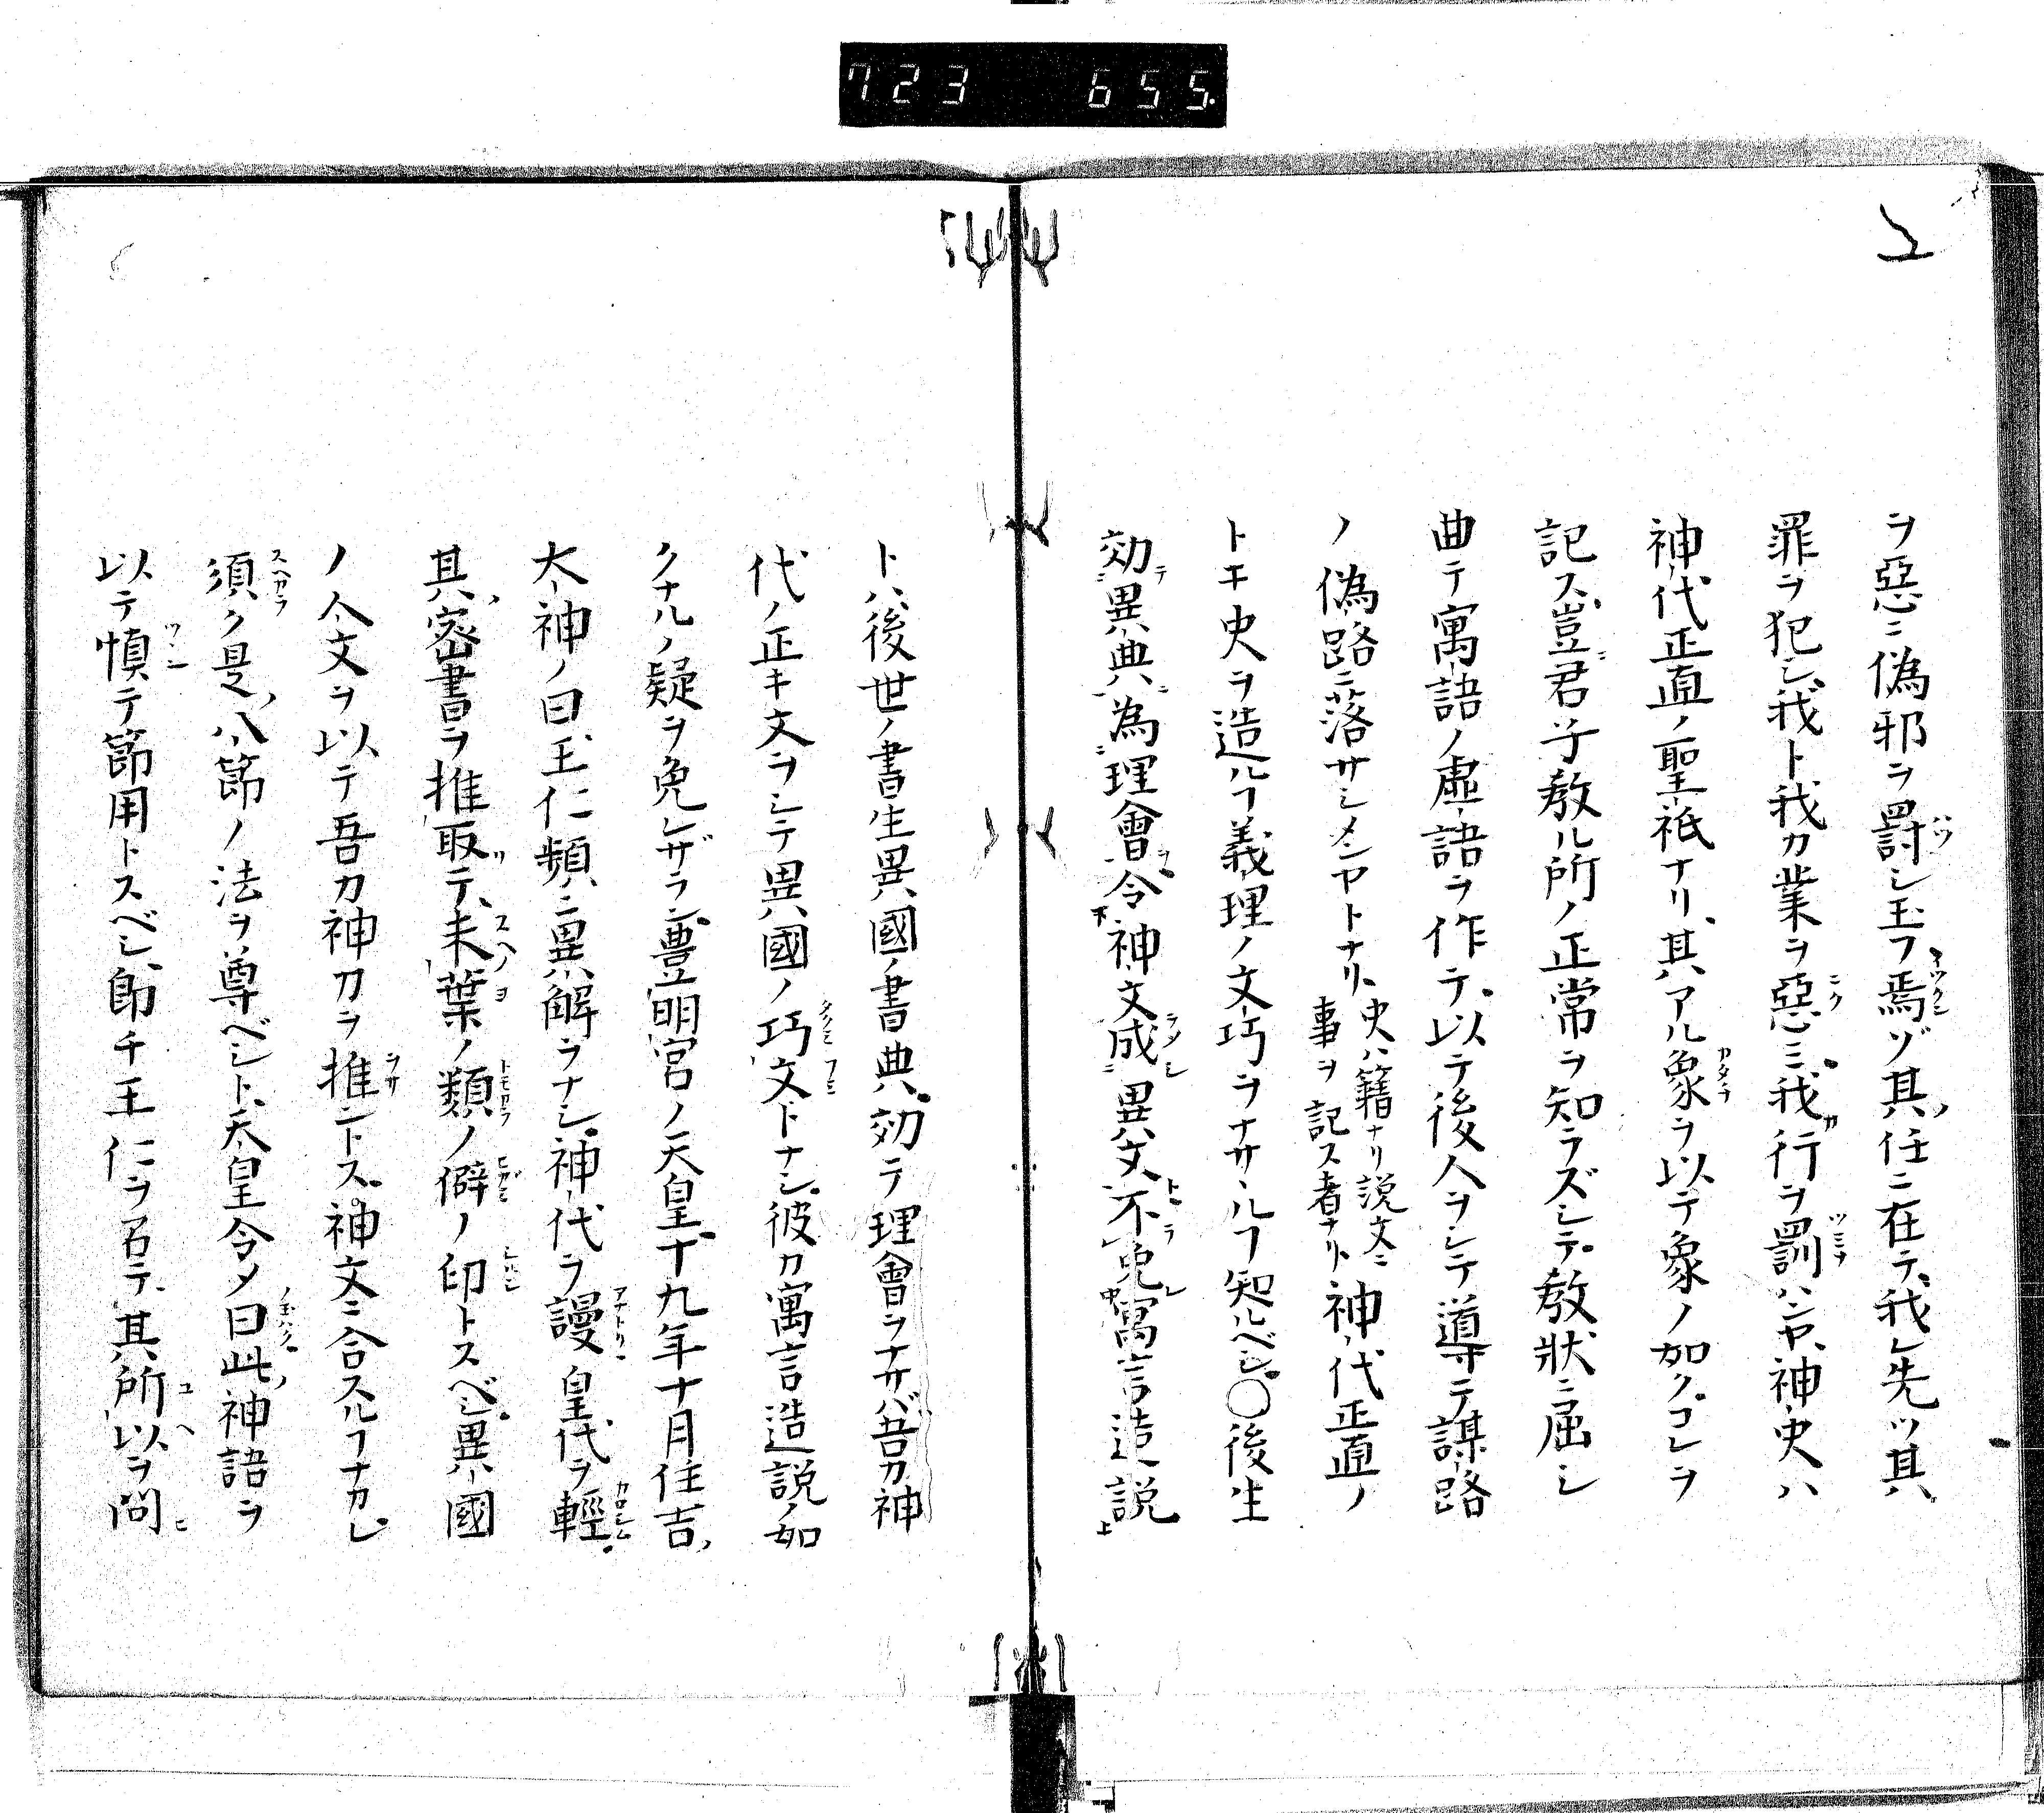 723 655
ヲ惡ミ偽邪ヲ罰シ玉フ焉ゾ其任ニ在テ我レ先ツ其
罪ヲ犯シ我ト我カ業ヲ惡ミ我行ヲ罰ハンヤ神史ハ
神代正直ノ聖祇ナリ其アル象ヲ以テ象ノ如クコレヲ
記ス豈君子教ル所ノ正常ヲ知ラズシテ教狀ニ屈シ
曲テ寓語ノ虛語ヲ作テ以テ後人ヲシテ導テ謀路
ノ偽路ニ落サシメンヤトナリ史ハ籍ナリ説文ニ事ヲ記ス者ナリ神代正直ノ
トキ史ヲ造ルヿ義理ノ文巧ヲナサヽルヿ知ルベシ〇後生
効異典為理會令神文成異文不免寓言造説
トハ後世ノ書生異國ノ書典効テ理會ヲナサバ吾カ神
代ノ正キ文ヲシテ異國ノ巧文トナシ彼カ寓言造説ノ如
クナルノ疑ヲ免レザラン豊明宮ノ天皇十九年十月住吉
大神ノ曰王仁頻ニ異解ヲナシ神代ヲ謾皇代ヲ輕
其密書ヲ推取テ末葉ノ類ノ僻ノ印トスベシ異國
ノ人文ヲ以テ吾カ神カラ推ントス神文ニ合スルヿナカレ
須ク是八節ノ法ヲ尊ベシト天皇令メ曰此神語ヲ
以テ慎テ節用トスベシ即チ王仁ヲ召テ其所以ヲ問